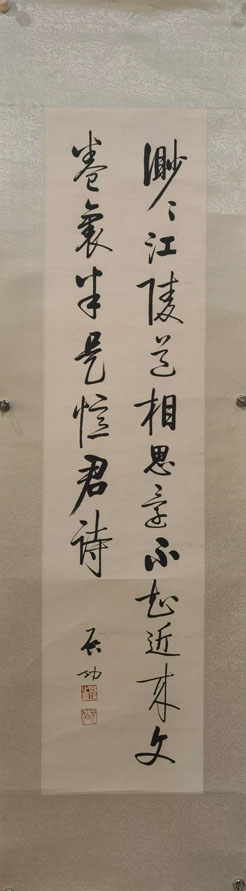 渺〻江陵道相思意不知近来文
卷裏半是忆君诗
启功